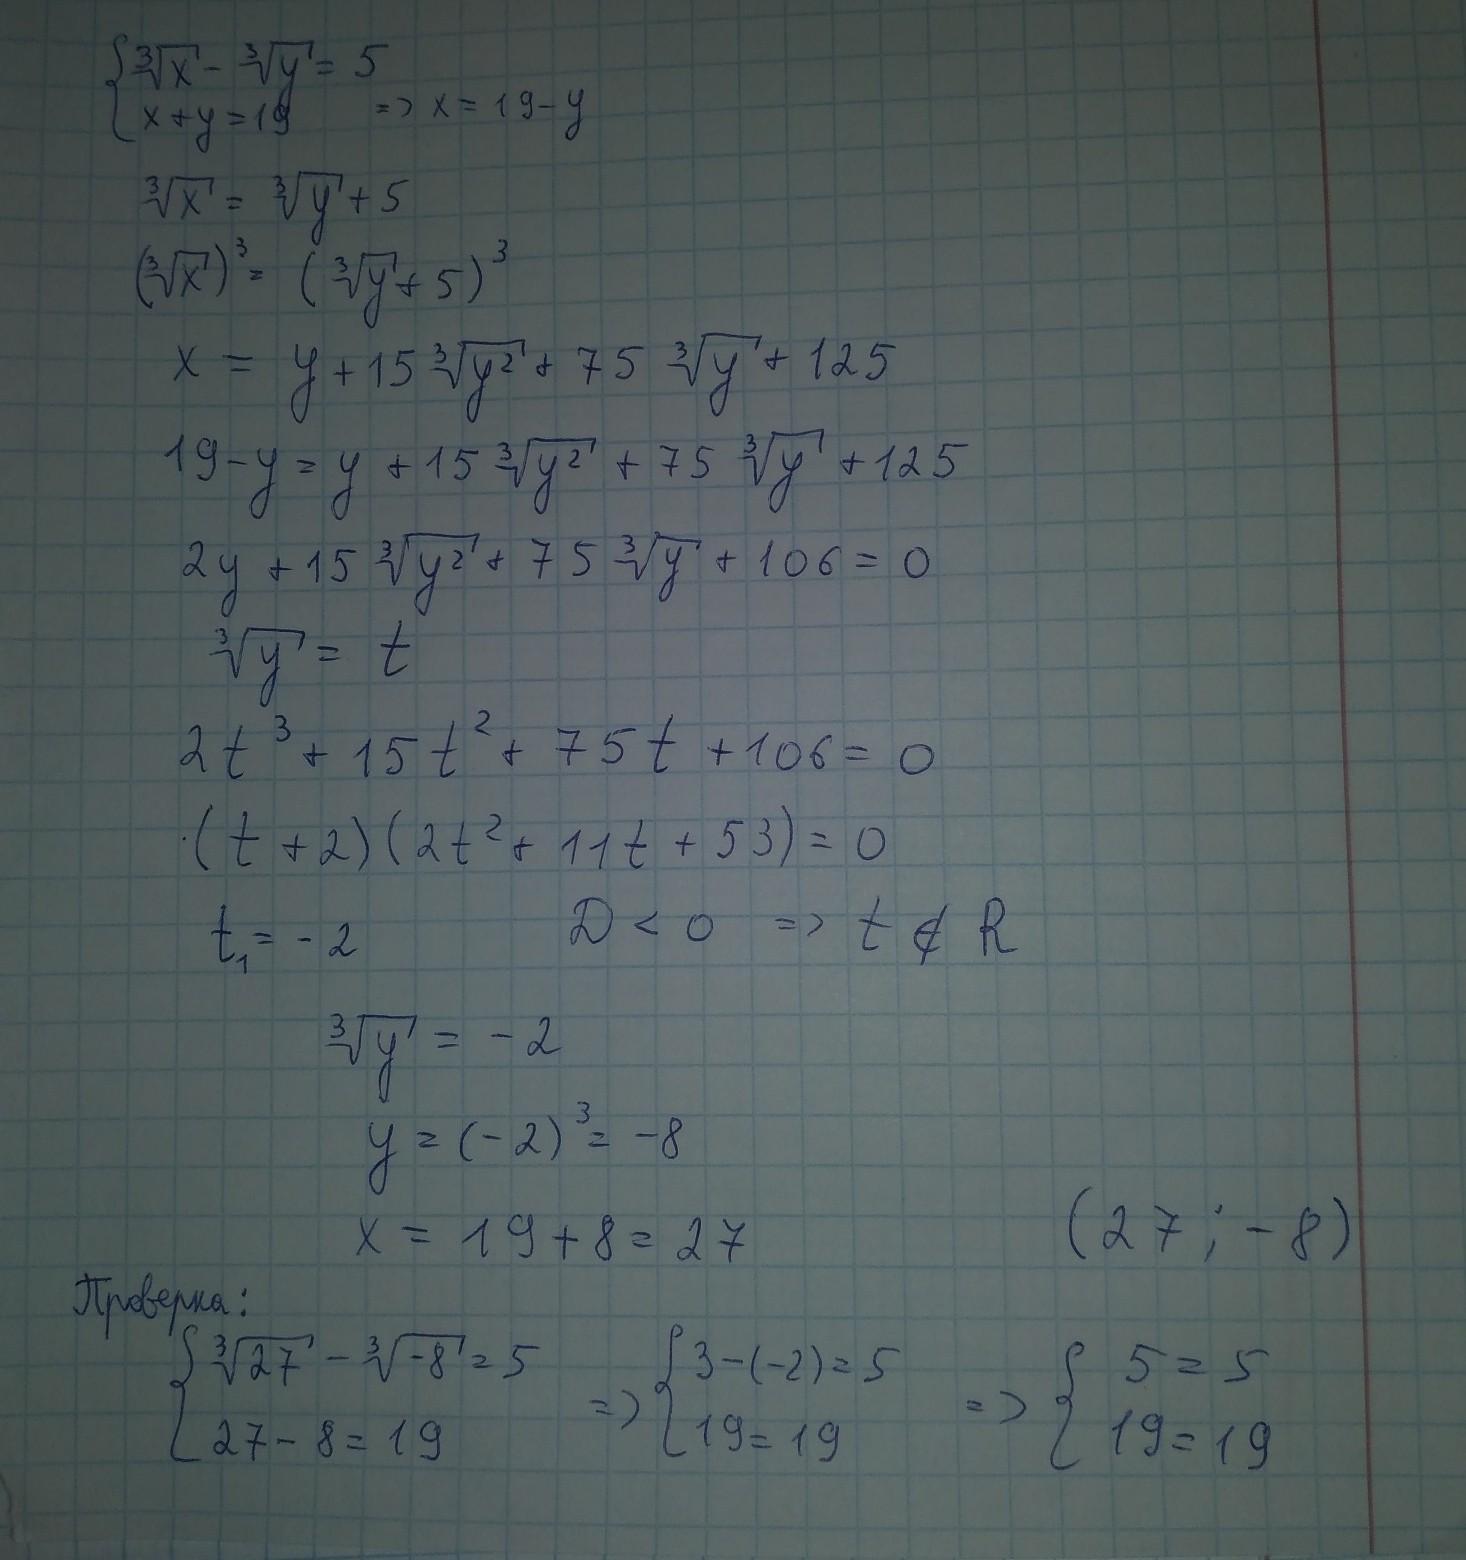 { ∛x - ∛y = 5
{ x + y = 19 => x = 19 - y
∛x = ∛y + 5
(∛x)³ = (∛y + 5)³
x = y + 15 ∛y² + 75 ∛y + 125
19 - y = y + 15 ∛y² + 75 ∛y + 125
2y + 15 ∛y² + 75 ∛y + 106 = 0
∛y = t
2t³ + 15t² + 75t + 106 = 0
(t + 2)(2t² + 11t + 53) = 0
t₁ = -2 D < 0 => t ∉ R
∛y = -2
y = (-2)³ = -8
x = 19 + 8 = 27 (27; -8)
Проверка:
{ ∛27 - ∛-8 = 5 => { 3 - (-2) = 5 => { 5 = 5
{ 27 - 8 = 19 { 19 = 19 { 19 = 19